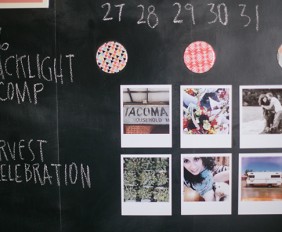 27 28 29 30 31
ACKLIGHT
COMP
TACOMA
RVEST
ELEBRATION